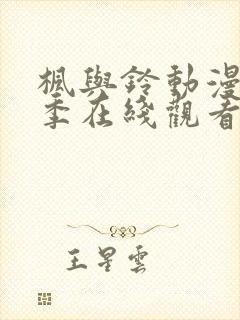 楓與鈴動漫
季在綫觀看
王星雲